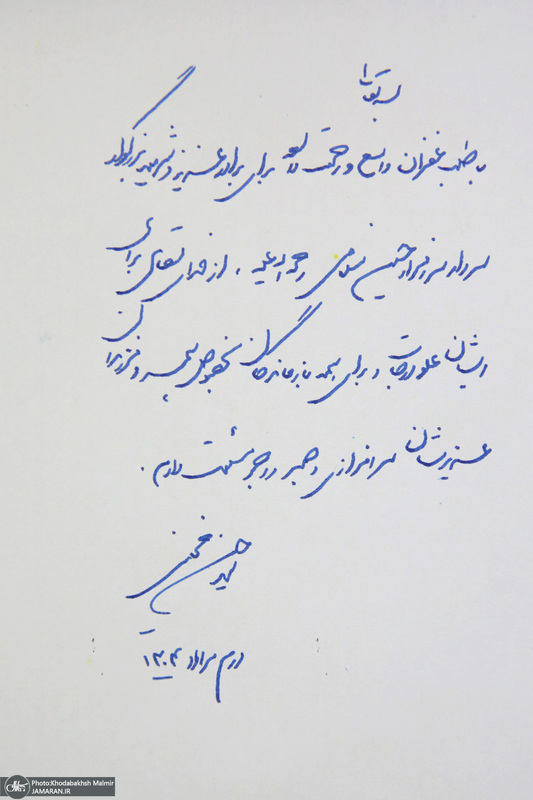 بسمه تعالی
با طلب غفران واسع و رحمت واسعه برای برادر عزیز و شهید بزرگوار
سردار سرافراز حسین سلامی رحمة الله علیه ، از خدای تعالی برای
ایشان علو درجات و برای همه بازماندگان بخصوص همسر و فرزندان
عزیزشان سرافرازی و صبر و اجر مسئلت دارم .
سید حسن خمینی
دوم مرداد ۱۴۰۴
Photo:Khodabakhsh Malmir
JAMARAN.IR